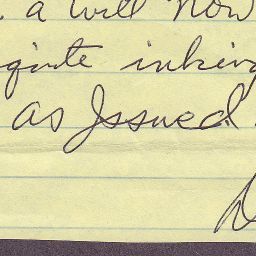 a will Now
quite inking
as Issued.